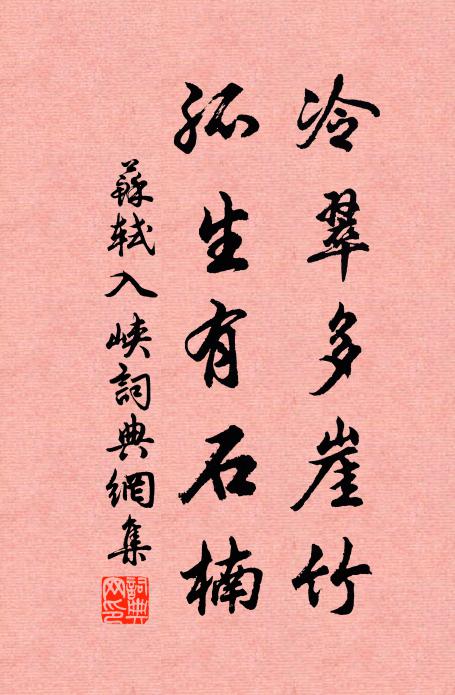 冷翠多崖竹
孤生有石楠
蘇軾入峽詞典網集
詞典网印